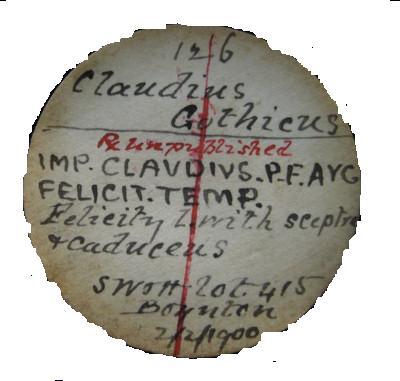 126
Claudius
Gothicus
R unpublished
IMP. CLAVDIVS. P.F. AVG
FELICIT. TEMP.
Felicity l. with sceptre
+ caduceus
lot 415
Boynton
2/2/1900